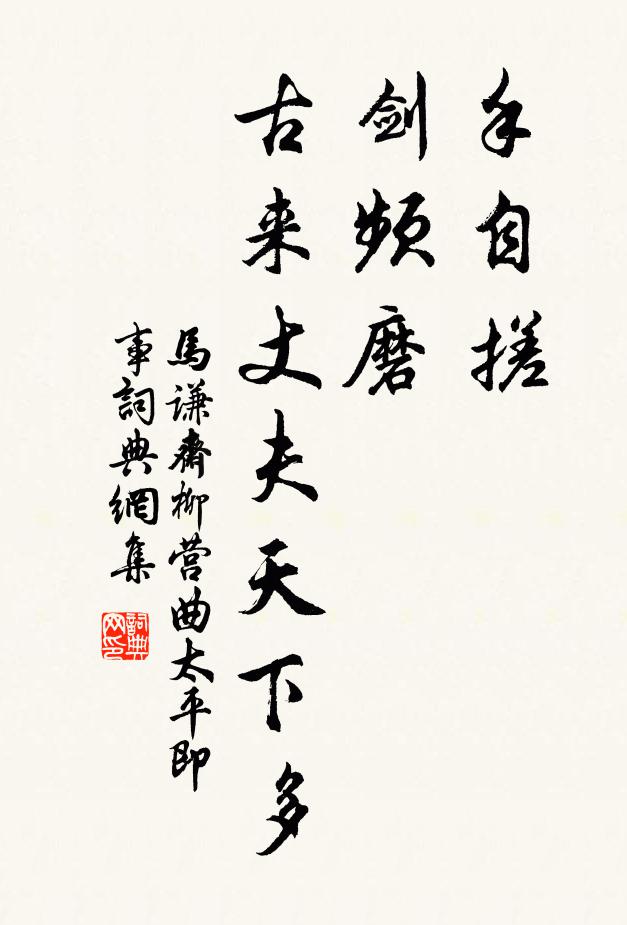 手自搓
剑频磨
古来丈夫天下多
馬谦齋柳营曲太平即
事詞典網集
詞典
网印